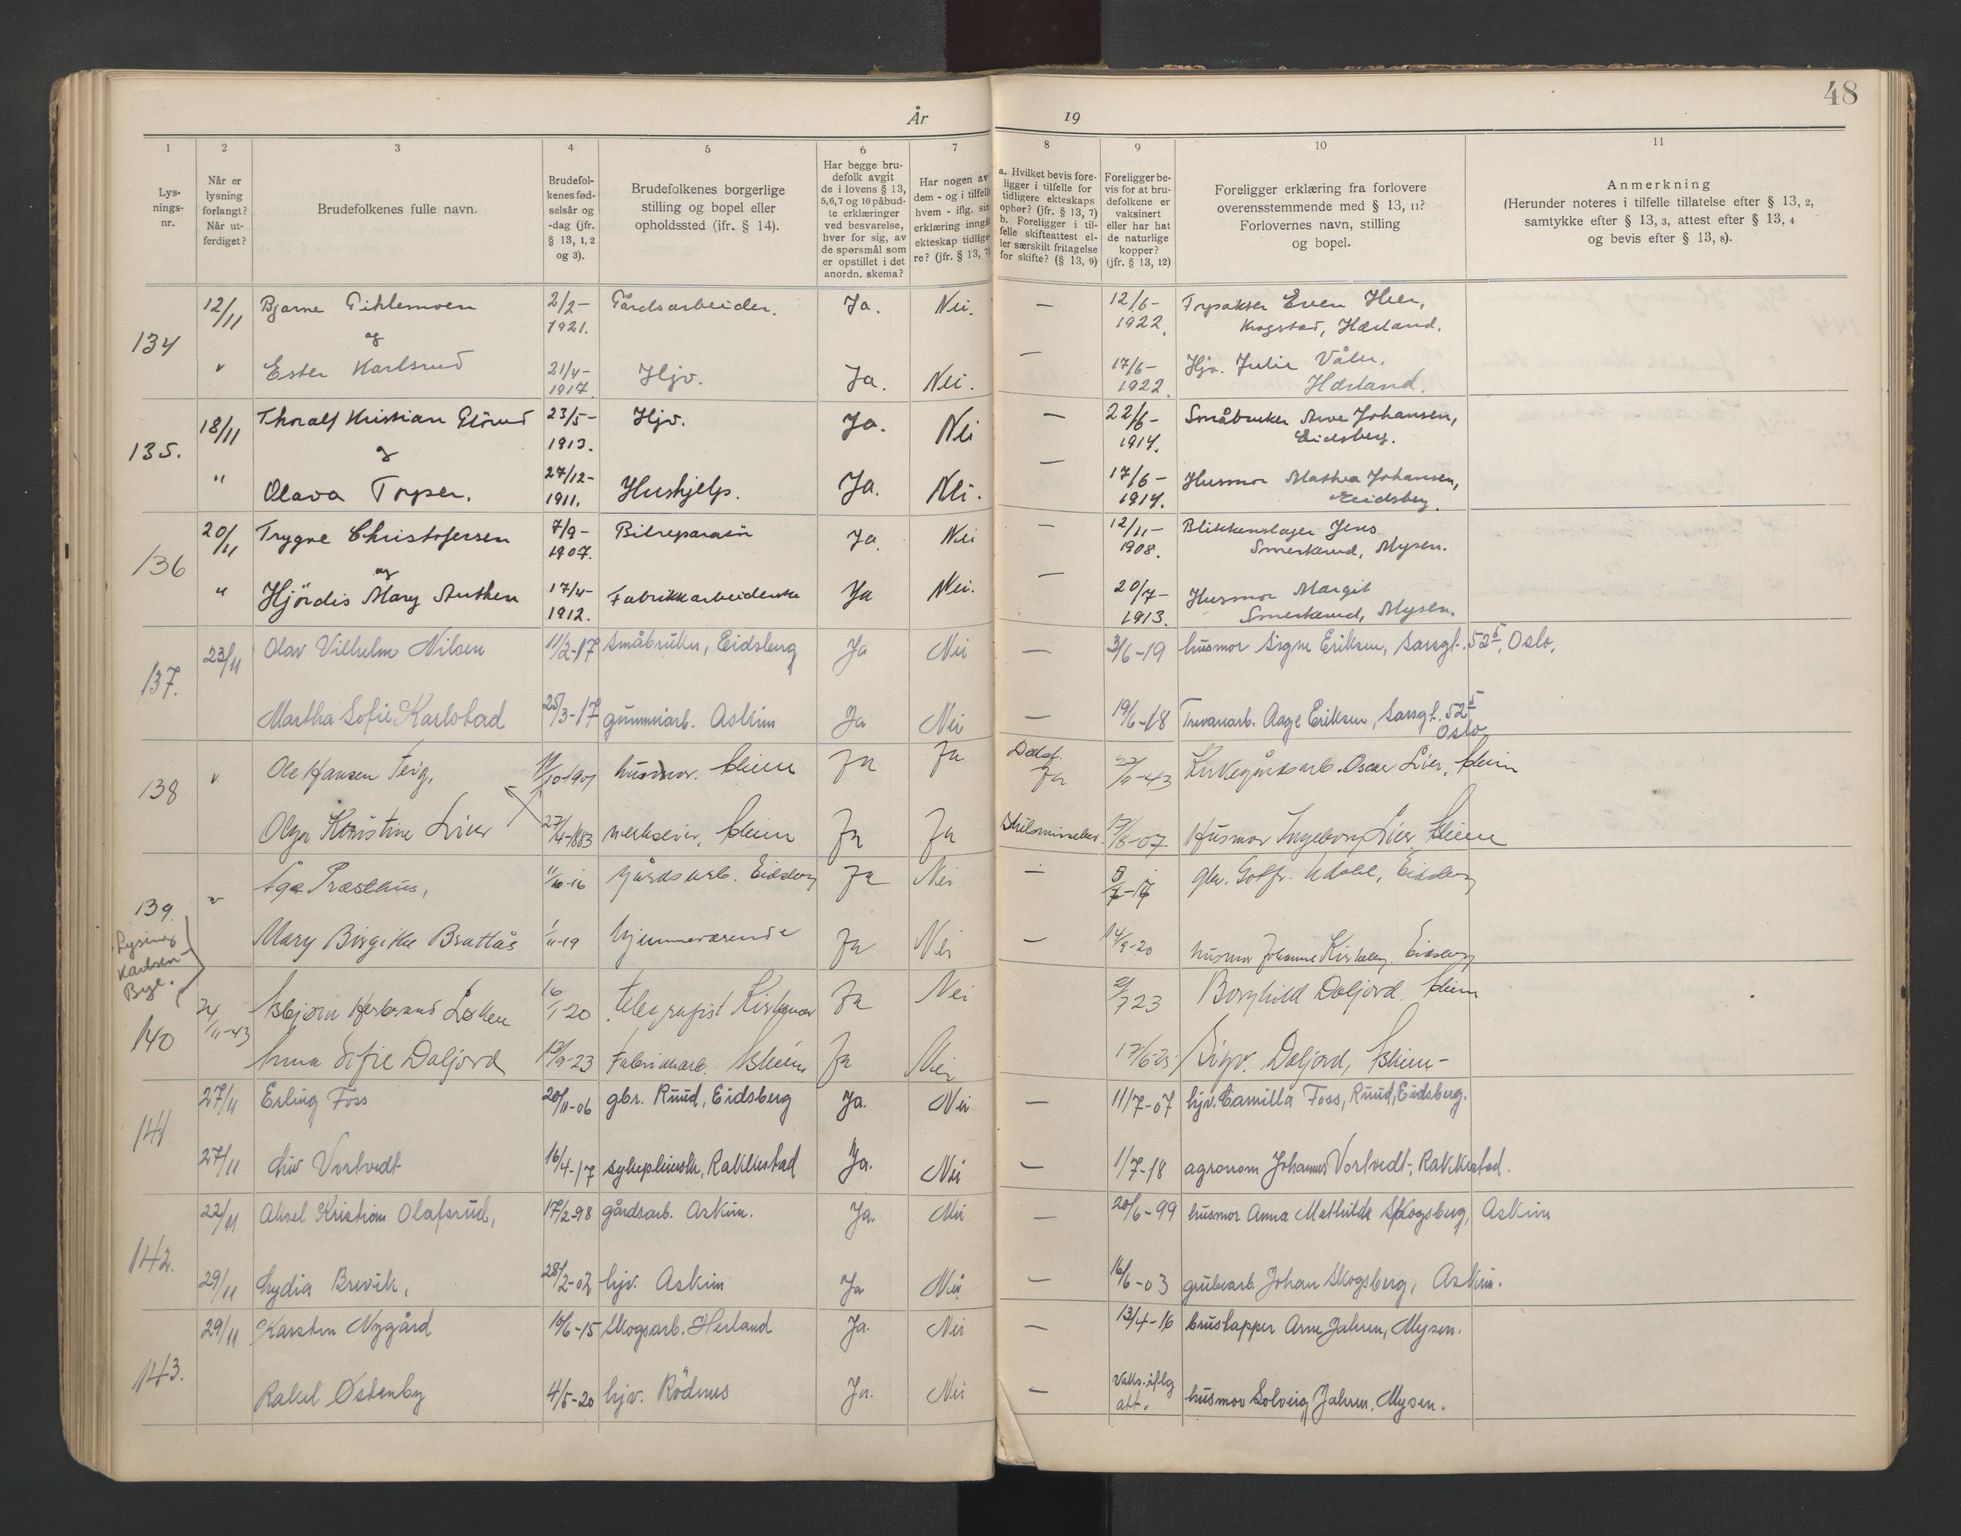 48
År 19
1 2 3 4 5 6 7 8 9 10 11
Lys-
nings-
nr.
Når er
lysning
forlangt?
Når ut-
ferdiget?
Brudefolkenes fulle navn.
Brudefol-
kenes fød-
selsår og
-dag (jfr.
§ 13, 1, 2
og 3).
Brudefolkenes borgerlige
stilling og bopel eller
opholdssted (ifr. § 14).
Har begge bru-
defolk avgit
de i lovens § 13,
5, 6, 7 og 10 påbud-
te erklæringer
ved besvarelse,
hver for sig, av
de spørsmål som
er opstillet i det
anordn. skema?
Har nogen av
dem - og i tilfelle
hvem - iflg. sin
erklæring inngåt
ekteskap tidlige-
re? (jfr. § 13, 7)
a. Hvilket bevis fore-
ligger i tilfelle for
tidligere ekteskaps
ophør? (jfr. § 13, 7)
b. Foreligger i til-
felle skifteattest el-
ler særskilt fritagelse
for skifte? (§ 13, 9)
Foreligger be-
vis for at bru-
defolkene er
vaksinert
eller har hat
de naturlige
kopper?
(jfr. § 13, 12)
Foreligger erklæring fra forlovere
overensstemmende med § 13, 11?
Forlovernes navn, stilling
og bopel.
Anmerkning
(Herunder noteres i tilfelle tillatelse efter § 13, 2,
samtykke efter § 13, 3, attest efter § 13, 4
og bevis efter § 13, 8).
134 12/11 Bjarne 2/2-1921. Gårdsarbeider. Ja. Nei. — 12/6-1922. Even
Krogstad, Hærland.
og
" Ester Karlsrud 21/4-1917. Hjv. Ja. Nei. — 17/6-1922 Hjv. Julie Våler,
Hærland.
135. 18/11 Thoralf Kristian 23/5-1913. Hjv. Ja. Nei — 22/6-1914. Småbruker Arve Johansen,
Eidsberg.
og
" Olava Tryser. 27/12-1911. Hushjelp. Ja. Nei. — 17/6-1914. Husmor Mathea Johansen,
Eidsberg.
136 20/11 Trygve Christofersen 7/9-1907. Bilreparatör Ja. Nei — 12/11-1908. Blikkenslager Jens
Smerkerud, Mysen.
og
" Hjördis Mary 17/4-1912. Fabrikkarbeiderske Ja Nei. — 20/7-1913. Husmor Margit
Smerkerud, Mysen.
137. 23/11 Olav Vilhelm Nilsen 11/2-17 Småbruker, Eidsberg Ja Nei — 3/6-19 husmor Signe Eriksen, Sarsgt. 52 5, Oslo.
Martha Sofie Karlstad 25/3-17 gummiarb. Askim Ja Nei — 19/6-18 Aage Eriksen, Sarsgt. 52 5
Oslo
138 " Ole Hansen Teig, husmor. Ja Ja Dødsf.
Ja 43 Kirkegårdsarb. Oscar Lier,
Olga Kristine Lier 27/4-1883 Ja Ja Skilsmisse 07 Husmor Ingeborg Lier
139. " Aage Præsthus, 11/10-16 gårdsarb. Eidsberg Ja Nei — gbr. Eidsberg
Lysning
Karlsen-
Bye.
Mary Birgitte Brattås 1/11-19 hjemmeværende Ja Nei — 14/9-20 husmor Johanne Eidsberg
140 24/11-43 Asbjørn Herbrand Løken 16/1-20 telegrafist Ja Nei Borghild Daljord.
Anna Sofie Daljord 13/9-23 Fabrikkarb. Ja Nei — Daljord,
141 27/11 Erling Foss 20/11-06 gbr. Ruud, Eidsberg Ja. Nei — 11/7-07 hjv. Camilla Foss, Ruud, Eidsberg.
27/11 Liv Vortvedt 16/4-17 sykepleierske, Rakkestad Ja. Nei — 1/7-18 agronom Johannes Vortvedt, Rakkestad.
142. 22/11 Aksel Kristian Olafsrud, 17/2-98 gårdsarb. Askim. Ja. Nei — 20/6-99 husmor Anna Mathilde Skogsberg, Askim
29/11 Lydia Brevik, 28/2-02 hjv. Askim Ja Nei — 16/6-03 grubearb. Johan Skogsberg, Askim.
143. 29/11 Karsten Nygård 10/6-15 Skogsarb. Herland Ja. Nei — 13/4-16 brustapper Arne Jahren, Mysen.
Rakel Østenby 4/5-20 hjv. Rödnes Ja. Nei — Vaks. iflg
att. husmor Solveig Jahren, Mysen.